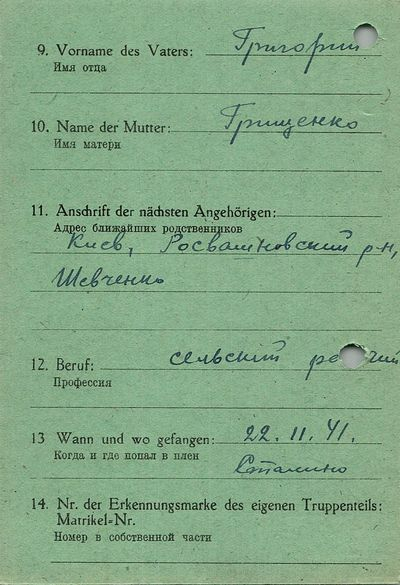 9. Vorname des Vaters: Григорий
Имя отца
10. Name der Mutter: Грищенко
Имя матери
11. Anschrift der nächsten Angehörigen:
Адрес ближайших родственников
Киев, Росвашновский р-н,
Шевченко
12. Beruf: сельский рабочий
Профессия
13 Wann und wo gefangen: 22.11.41.
Когда и где попал в плен
Сталино
14. Nr. der Erkennungsmarke des eigenen Truppenteils:
Matrikel=Nr.
Номер в собственной части